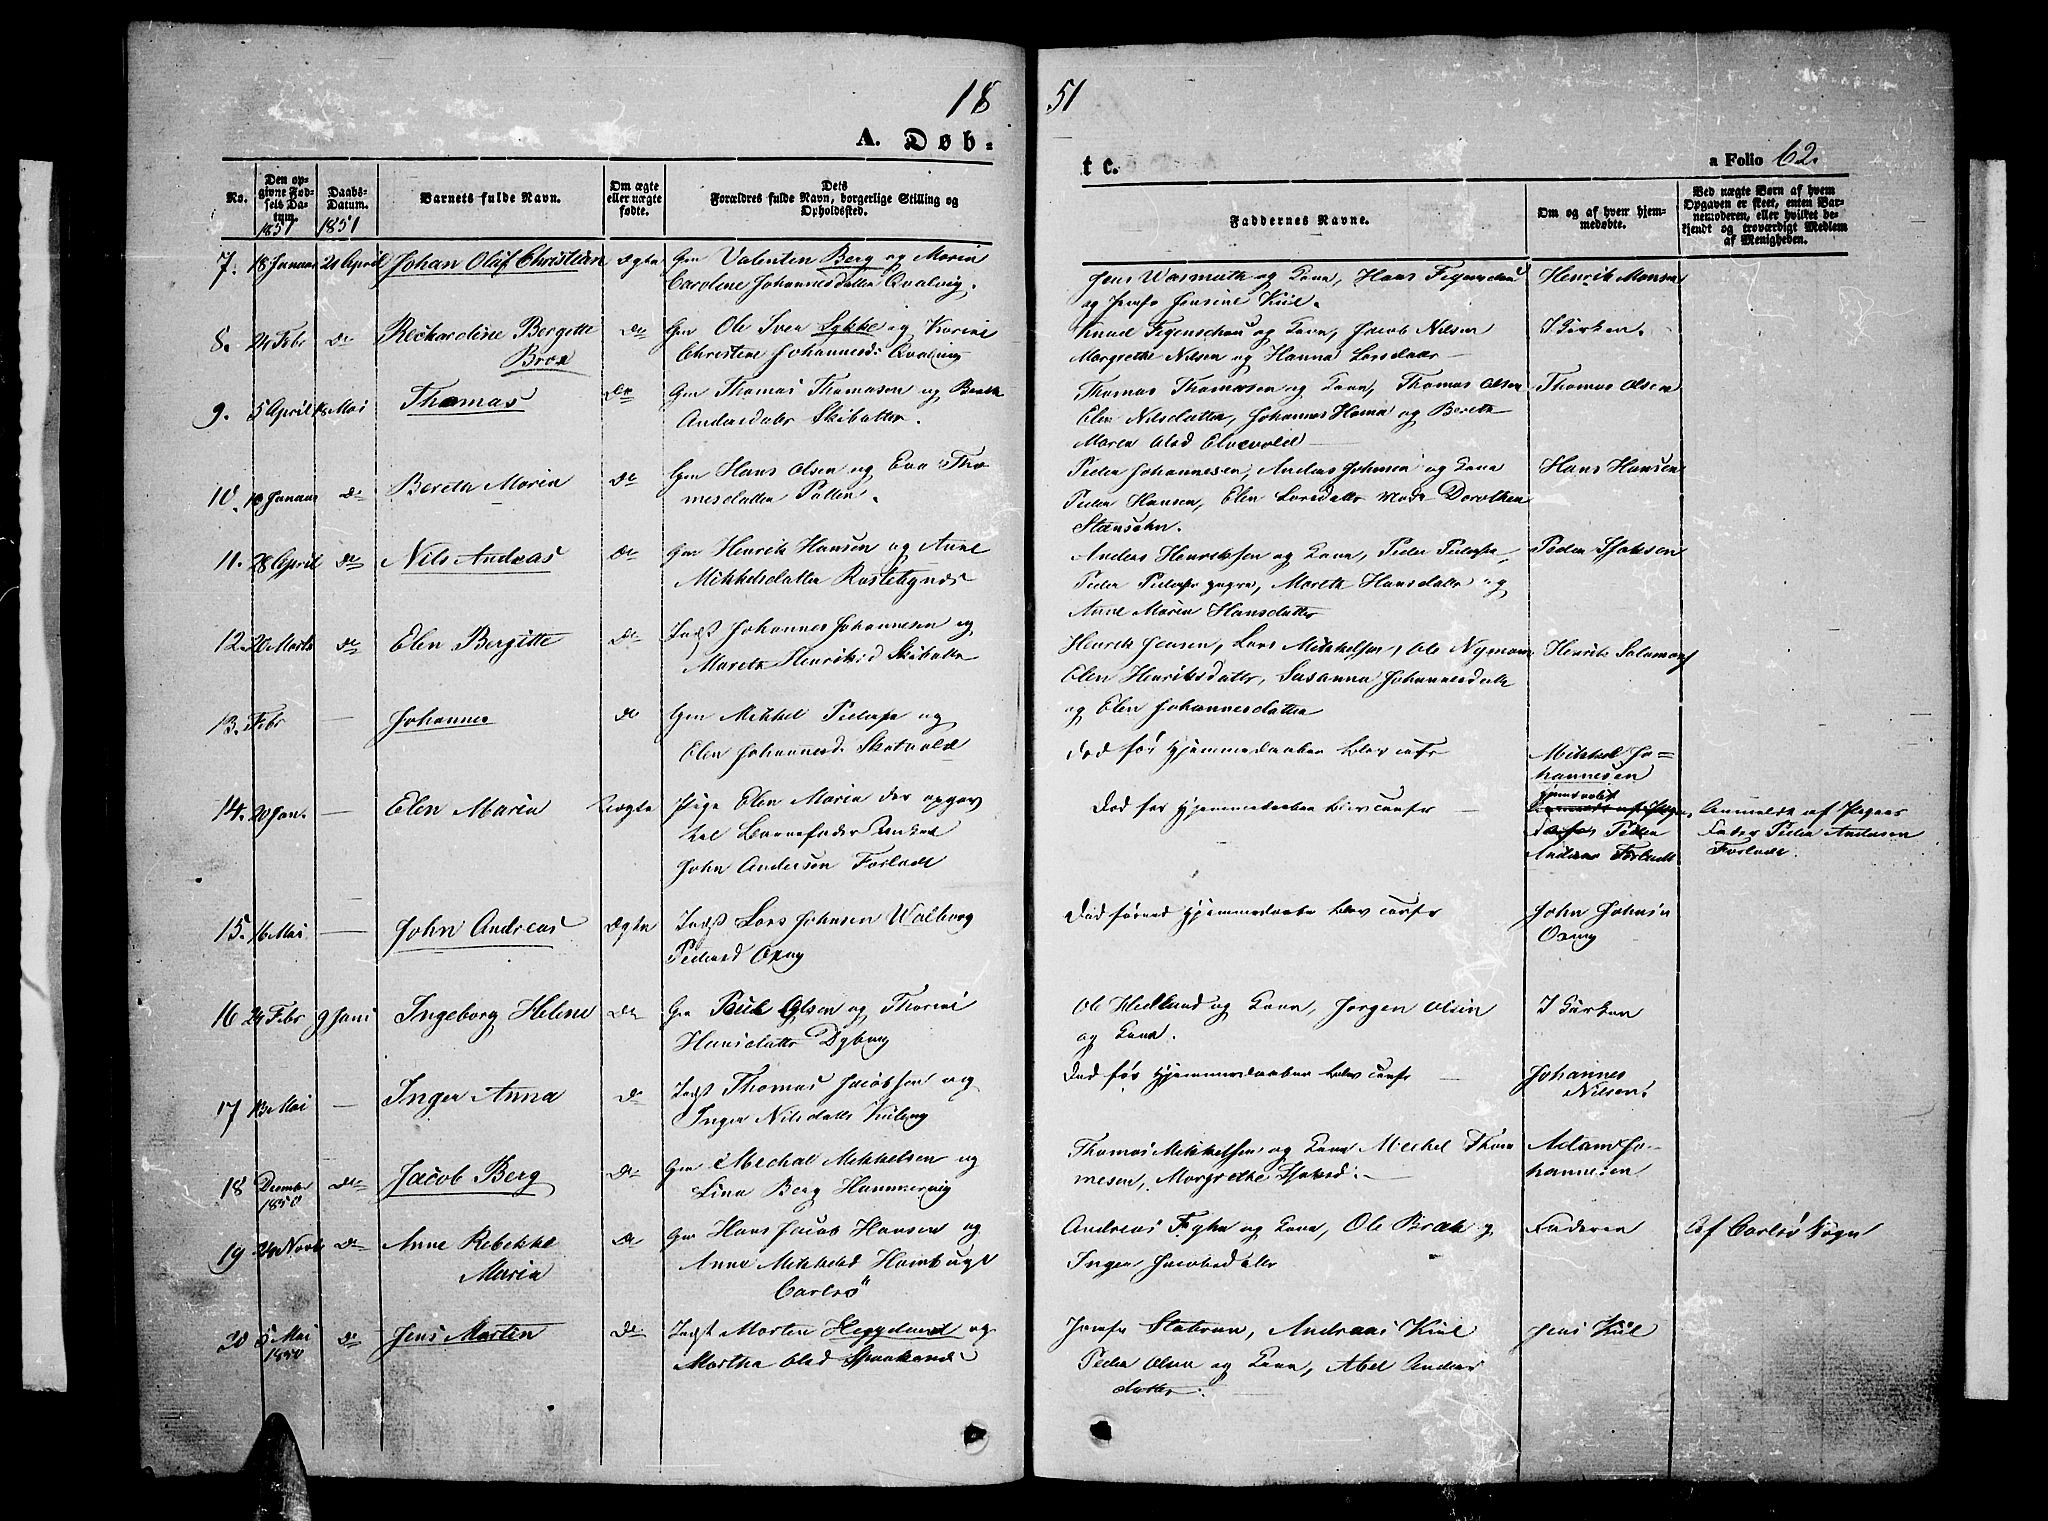 18 51
A. Døb- t c.
a Folio 62.
No.
Den op-
givne Fød-
sels Da-
tum.
1851
Daabs-
Datum.
1851
Barnets fulde Navn.
Om ægte
eller uægte
fødte.
Dets
Forældres fulde Navn, borgerlige Stilling og
Opholdssted.
Faddernes Navne.
Om og af hvem hjem-
medøbte.
Ved uægte Børn af hvem
Opgaven er skeet, enten Bar-
nemoderen, eller hvilket be-
kjendt og troværdigt Medlem
af Menigheden.
7. 18 Januar 21 April Johan Oluf Christian Ægte Gm Valentin Berg og Maria
Caroline Johannesdatter Qvalvig.
Jens Wasmuth og Kone, Hans Figenschau
og Jomfr Jensine Kiil.
Henrik Monsen
8. 21 Febr do Rechardine Bergitte
Brox
do Gm Ole Iver Lykke og Karine
Christine Johannesd: Qvalvig
Knud Figenschau og Kone, Jacob Nilsen
Margrethe Nilsen og Hanna Larsdatter
I Kirken.
9. 5 April 18 Mai Thomas do Gm Thomas Thomasen og Berith
Andersdatter Skibotten.
Thomas Thomasen og Kone, Thomas Olsen
Elen Nilsdatter, Johannes Hama og Bereth
Maren Olsd Elvevold
Thomas Olsen
10. 10 Januar do Bereth Maria do Gm Hans Olsen og Eva Tho-
mesdatter Pollen.
Peder Johannesen, Anders Johnsen og Kone
Peder Hansen, Elen Larsdatter Mad: Dorothea
Hans Hansen
11. 28 April do Nils Andreas do Gm Henrik Hansen og Anne
Mikkelsdatter
Anders Henriksen og Kone, Peder Peders.
Peder Peders. yngre, Mareth Hansdatter og
Anne Maria Hansdatter
Peder
12. 20 Marts do Elen Bergitte do Indst Johannes Johannesen og
Mareth Henriksd Skibotten
Henrik Jensen, Lars Mikkelsen, Ole Nyman
Elen Henriksdatter, Susanna Johannesdatter
og Elen Johannesdatter
Henrik Salamons
13. Febr — Johannes do Gm Mikkel Peders. og
Elen Johannesd. Skotvold
Død før Hjemmedaaben blev conf.
Mikkel Jo-
hannesen
14. 20 Jan. — Elen Maria Uægte Pige Elen Maria der opgav
til Barnefader Enkem
John Andersen Forland
Død før Hjemmedaaben blev conf. —
Peder
Anmeldt af Pigens
Fader Peder Andersen
15. 16 Mai — John Andreas Ægte Indst Lars Johnsen Walborg
Pedersd Oxvig
Død førend Hjemmedaaben blev conf.
John Johnsen
Oxvig
16 24 Febr 9 Juni Ingeborg Helene do Gm Poul Olsen og Thorine
Hansdatter Dybvig
Ole Hedlund og Kone, Jørgen Olsen
og Kone.
I Kirken
17 13 Mai — Inger Anna do Indst Thomas Jacobsen og
Inger Nilsdatter Kilvig
Død før Hjemmedaaben blev conf. —
Johannes
Nilsen
18 Decembr
1850
do Jacob Berg do Gm Mechal Mikkelsen og
Lina Berg Hammervig
Thomas Mikkelsen og Kone Mechel Thom
mesen, Margrethe
Adam Jo-
hannesen
19 24 Novbr do Anne Rebekke
Maria
do Gm Hans Jacob Hansen og
Anne Mikkelsd
Carlsø
Andreas og Kone, Ole Bræk og
Inger Jacobsdatter
Faderen
Af Carlsø Sogn
20 5 Mai
1850
do Jens Martin do Indst Morten Heggelund og
Martha Olsd Spaakenæs
Jomfr Andreas Kiil
Peder Olsen og Kone, Abel Anders
datter.
Jens Kiil